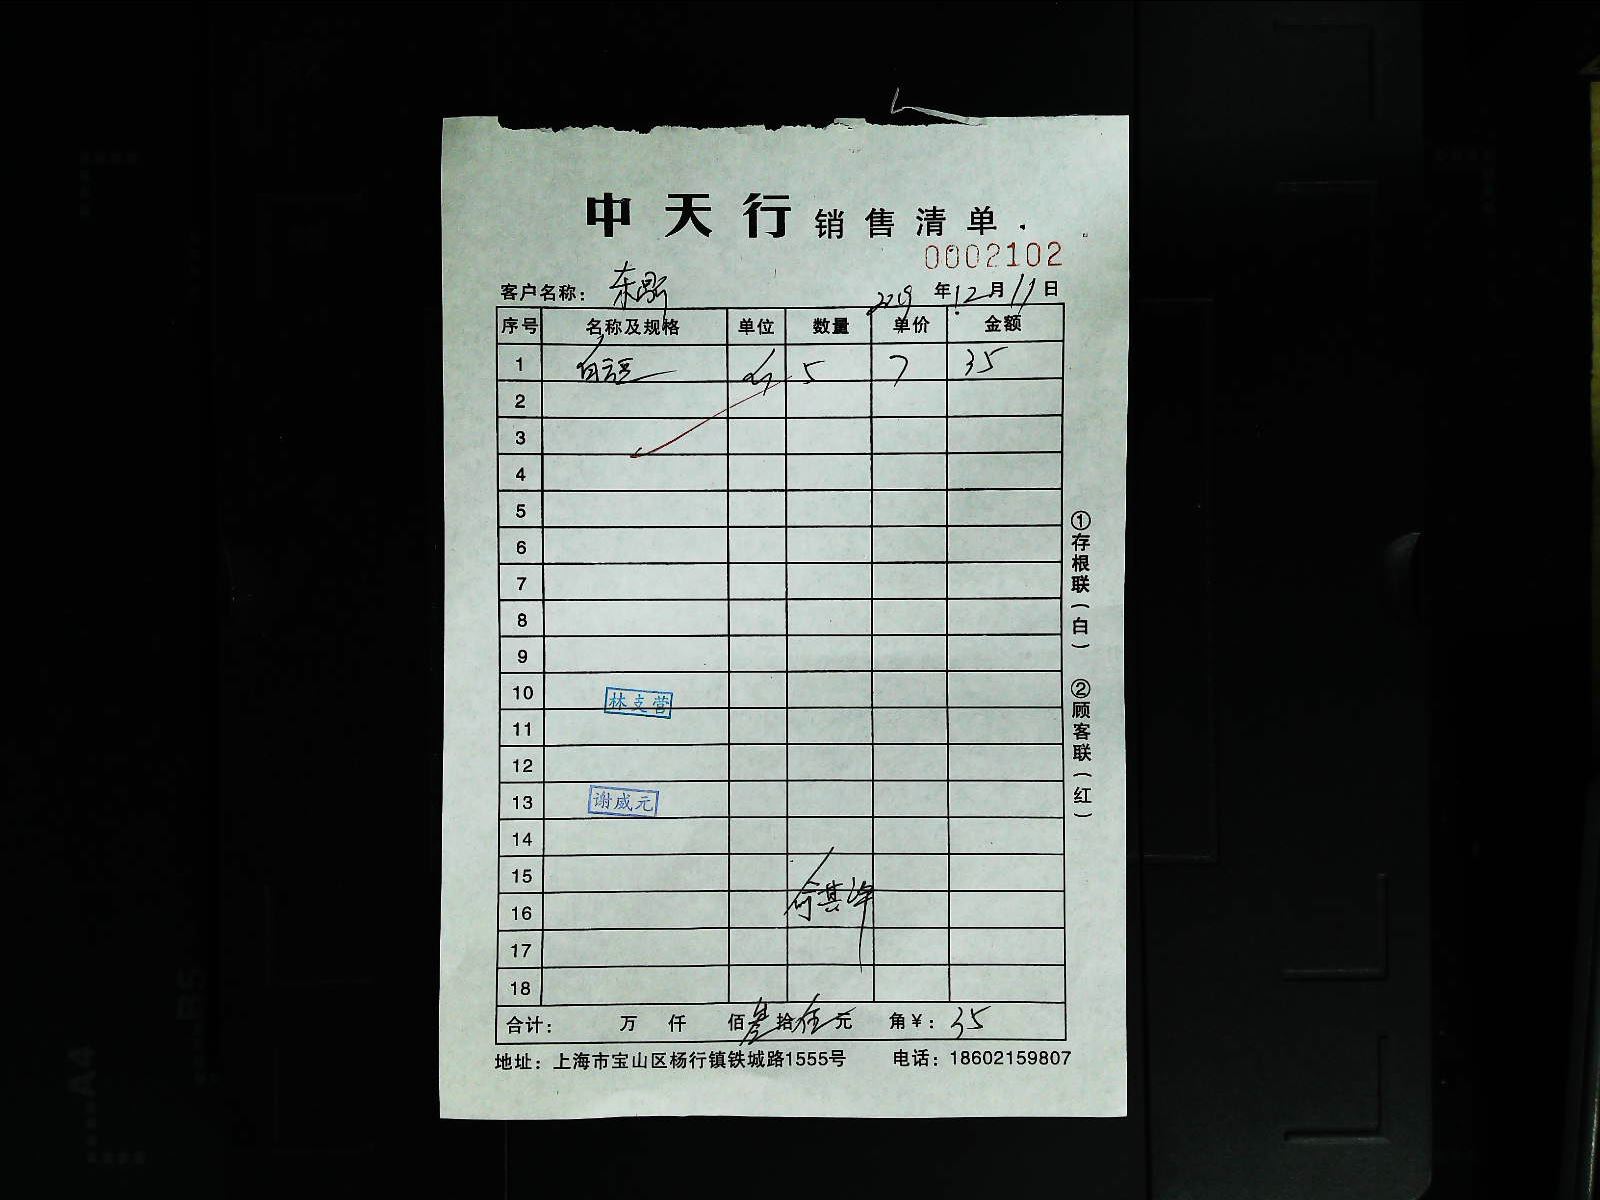 中天行 销售清单
0002102
客户名称：
2019 年 12 月 11 日
序号 名称及规格 单位 数量 单价 金额
1 5 7 35
2
3
4
5
6
7
8
9
10 林支营
11
12
13 谢威元
14
15
16
17
18
合计： 万 仟 佰 叁 拾 伍 元 角 ¥：35
地址：上海市宝山区杨行镇铁城路1555号 电话：18602159807
①存根联（白） ②顾客联（红）